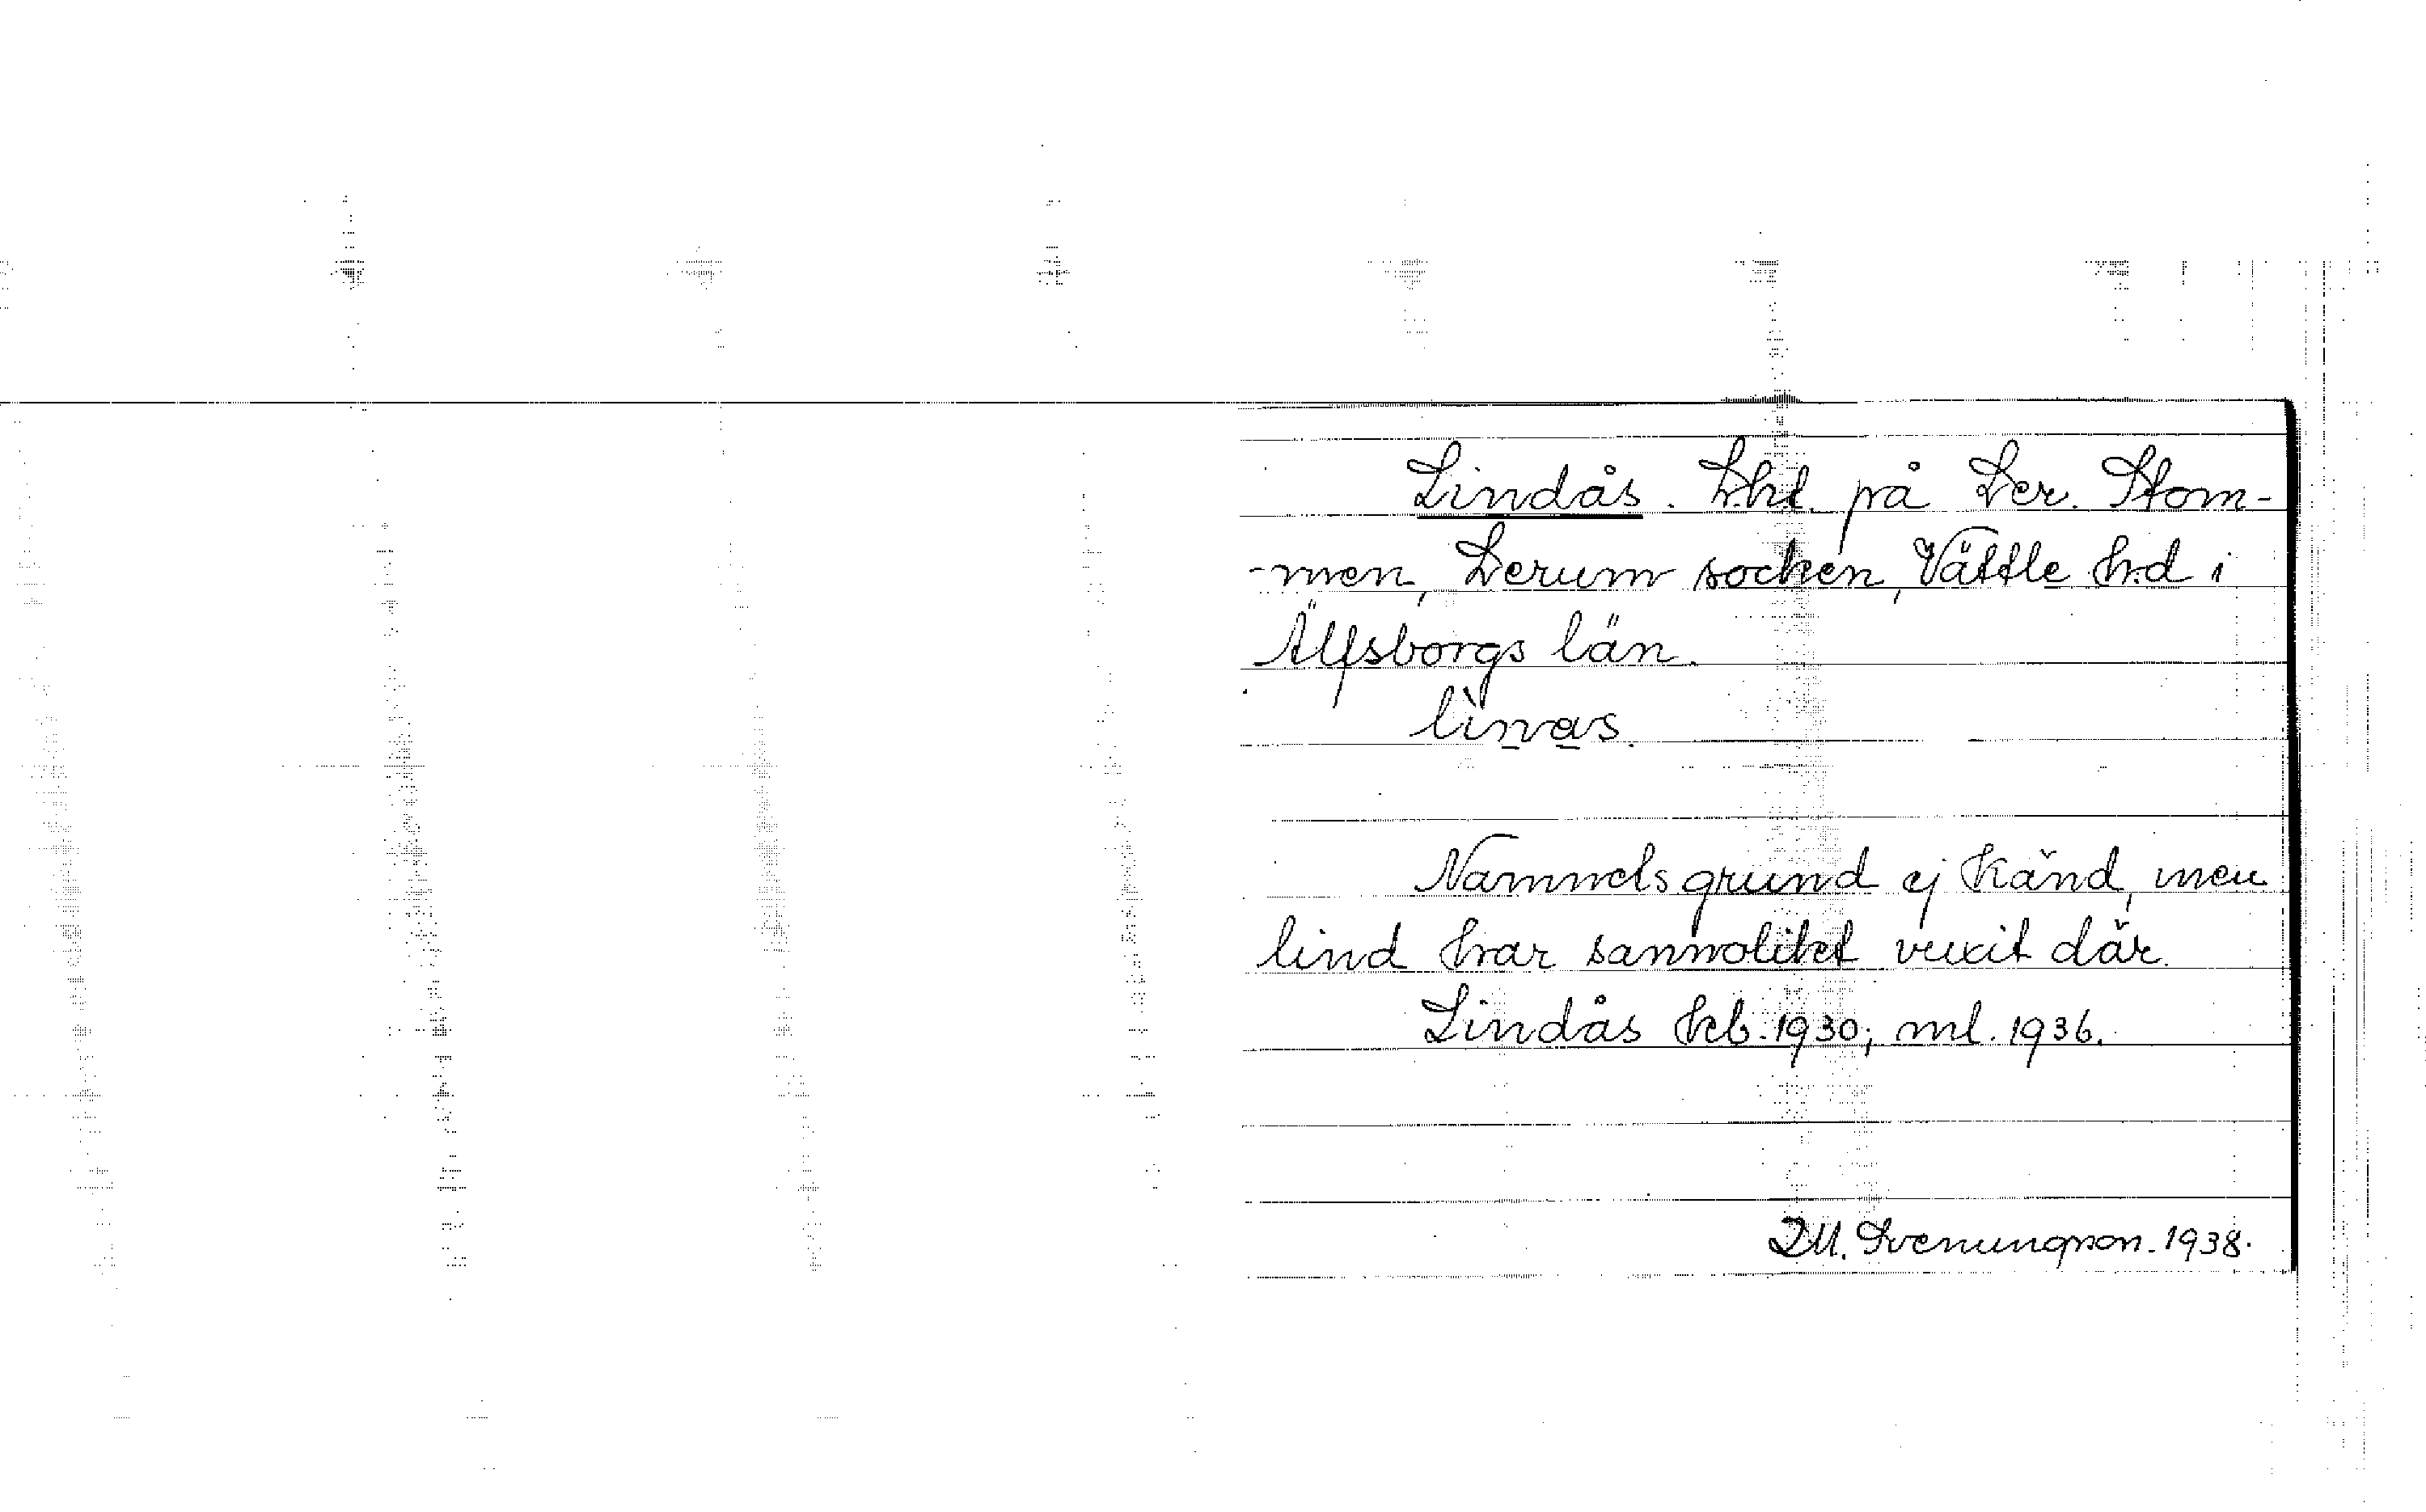 Lindås. Lht. på Ler. Stom-
-men, Lerum socken, Vättle hd i
Älfsborgs län.
lìnas.
Namnets grund ej känd, men
lind har sannolikt vuxit där.
Lindås kb. 1930; ml. 1936.
D.M. Svenungson. 1938.